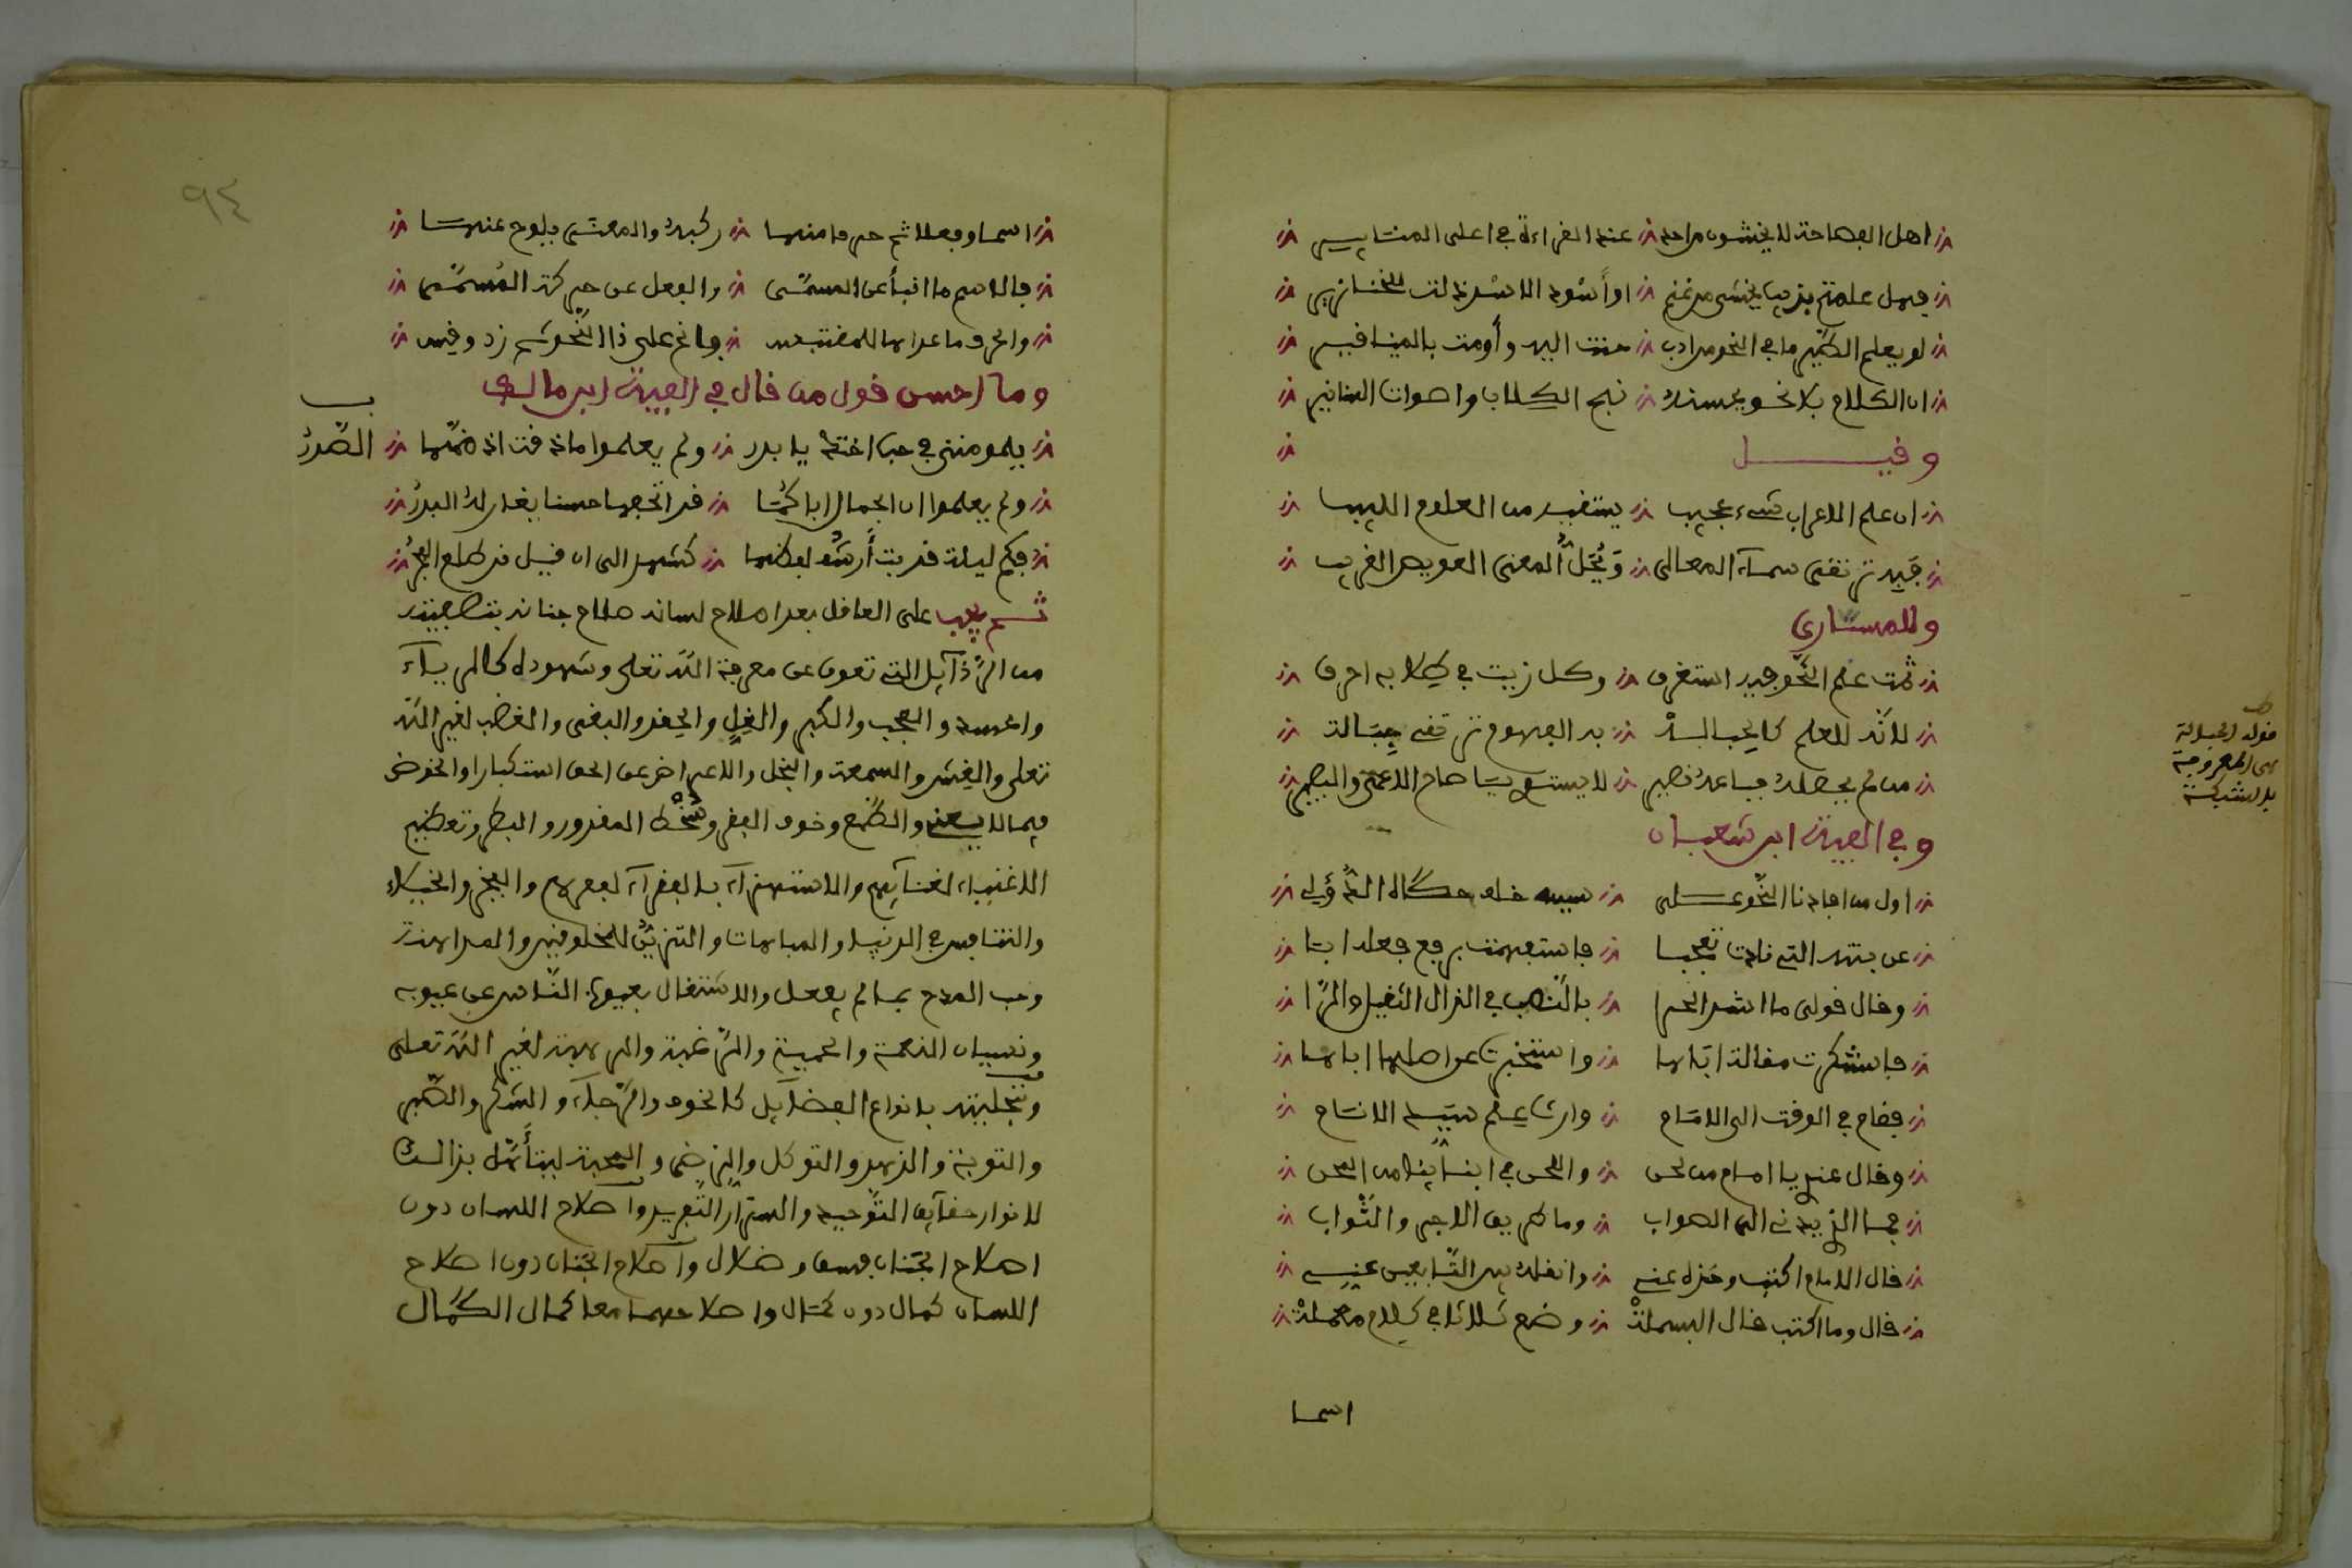 اهل الفصاحة لا يخشون من احد عند القراءة في اعلى المنابير
فهل علمتم بذيب يخشى من غنم او أسود الاسد ذلت للخنازير
لو يعلم الطير ما في النحو من ادب حنت اليه وأومت بالمنافير
ان الكلام بلا نحو يحسنه نبح الكلاب واصوات السنانير
وقيل
ان علم الاعراب شيء عجيب يستفيد من العلوم اللبيب
فبه ترتقى سماء المعالى ويحل المعنى العويص الغريب
وللمساري
ثمت علم النحو فيه استغرق وكل زيت في طلابه احرق
لانه للعلم كالحب الـ به الفهوم ترتقي جباله
من لم يحصله فباعه قصير لا يستوي يا صاح الاعمى والبصير
وفي الفية ابن شعبان
اول من افادنا النحو على سيد حكاه الدؤلي
عن بنته التي نادت تعجبا فاستفهمت برفع فعلها ابا
وقال قولى ما اشد الحرا بالنصب في الدال الثقيل والرا
فاستنكرت مقالة اباها واستخبرت عن اصلها اباها
فقام في الوقت الى الامام وارث علم سيد الانام
وقال عند يا امام من لحن واللحن في ابنائنا من المحن
فما الذي يهدي الى الصواب وما طريق الاجر والثواب
قال الامام اكتب وخذه عني وانقله بين التابعين عني
قال وما اكتب قال البسمله وضع ثلاثا في كلام معمله
اسما
قوله الحبالة
هي المعروفة
بالشبكة
٩٤
اسما وفعلا ثم حرفا منهما ركبه والمعنى يلوح عنهما
فالاسم ما انبأ عن المسمى والفعل عن حركة المسمى
والحرف ما عداهما للمقتبس وانح على ذا النحو ثم زد وقس
وما احسن قول من قال في الفية ابن مالك
يلومنني في حب اختك يا بدر ولم يعلموا ما ذقت اذ ضمها الصدر
ولم يعلموا ان الجمال اباكها قد اتحفها حسنا يغار له البدر
فكم ليلة قد بت أرشف لفظها كشهد الى ان قيل قد طلع الفجر
ثم يجب على العاقل بعد اصلاح لسانه صلاح جنانه بتصفيته
من الرذآيل التي تعوق عن معرفة الله تعلى وشهوده كالريآء
والحسد والعجب والكبر والغل والحقد والبغي والغضب لغير الله
تعلى والغش والسمعة والبخل والاعراض عن الحق استكبارا والخوض
فيما لا يعني والطمع وخوف الفقر وسخط المقدور والبطر وتعظيم
الاغنياء لغنآيهم والاستهزآء بالفقرآء لفقرهم والفخر والخيلاء
والتنافس في الدنيا والمباهات والتزين للمخلوقين والمداهنة
وحب المدح بما لم يفعل والاشتغال بعيوب الناس عن عيوبه
ونسيان النعمة والحمية والرغبة والرهبة لغير الله تعلى
وتحليته بانواع الفضآيل كالخوف والرجآء والشكر والصبر
والتوبة والزهد والتوكل والرضى والمحبة ليتأهل بذالك
لانوار حقآيق التوحيد واسرار التفريد واصلاح اللسان دون
اصلاح الجنان فسق وضلال واصلاح الجنان دون اصلاح
اللسان كمال دون كمال واصلاحهما معا كمال الكمال